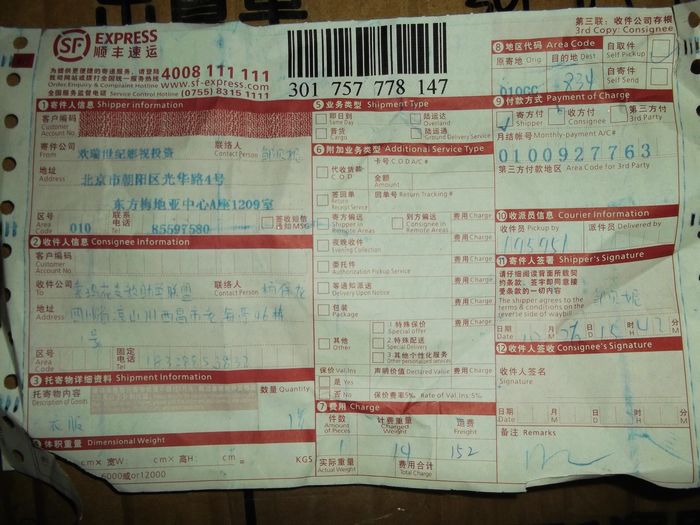 SF EXPRESS
顺丰速运
为提供更便捷的寄递服务,请登陆
4008 111 111
Order Enquiry & Complaint Hotline
www.sf-express.com
全国服务监督电话 Service Control Hotline (0755) 8315 1111
301 757 778 147
第三联:收件公司存根
3rd Copy: Consignee
8 地区代码 Area Code
原寄地 Orig
目的地 Dest
834
自取件
Self Pickup
自寄件
Self Send
1 寄件人信息 Shipper information
客户编码
Customer
Account No.
寄件公司
From
欢瑞世纪影视投资
联络人
Contact Person
地址
Address
北京市朝阳区光华路4号
东方梅地亚中心A座1209室
区号
Area
Code
010
联系
电话
Tel
85597580
签收短信
2 收件人信息 Consignee Information
客户编码
Customer
Account No.
收件公司
To
联络人
Contact Person
地址
Address
区号
Area
Code
固定
电话
Tel
3 托寄物详细资料 Shipment Information
托寄物内容
Description of Goods
数量 Quantity
衣服
体积重量 Dimensional Weight
cm× 宽W
cm× 高H:
cm÷
KGS
6000或or12000
5 业务类型 Shipment Type
即日到
Same Day
陆运达
Overland
普货
Cargo
陆运通
Ground Delivery Service
6 附加业务类型 Additional Service Type
代收货款
C.O.D
卡号 C.O.D A/C#
金额
Amount
签回单
Return
Receipt Service
回单号 Return Tracking #
寄方偏远
Shipper in
Remote Areas
到方偏远
Consignee in
Remote Areas
费用 Charge
夜晚收件
Evening Collection
费用 Charge
委托件
Authorization Pickup Service
费用 Charge
等通知派送
Delivery Upon Notice
费用 Charge
包装
Package
费用 Charge
其他
Other
1 特殊保价
Special offer
2 特殊配送
Special Delivery
3 其他个性化服务
Other personalised services
费用 Charge
保价 Val.Ins
声明价值 Declared Value
费用 Charge
是 Yes
否 No
保价费率5‰ Rate of Val.Ins:5‰
7 费用 Charge
件数
Amount of Pieces
计费重量
Charged Weight
运费
Freight
1
19
152
实际重量
Actual Weight
费用合计
Total Charge
9 付款方式 Payment of Charge
寄方付
Shipper
收方付
Consignee
第三方付
3rd Party
月结帐号 Monthly-payment A/C#
0100927763
第三方付款地区 Area Code for 3rd Party
10 收派员信息 Courier Information
收件员 Pickup by
派件员 Delivered by
195951
11 寄件人签署 Shipper's Signature
请仔细阅读背面所载契
约条款、签字即同意接
受条款的一切内容
The shipper agrees to the
terms & conditions on the
reverse side of waybill
日期
Date
12 收件人签收 Consignee's Signature
收件人签名
Signature
日期
Date
备注 Remarks